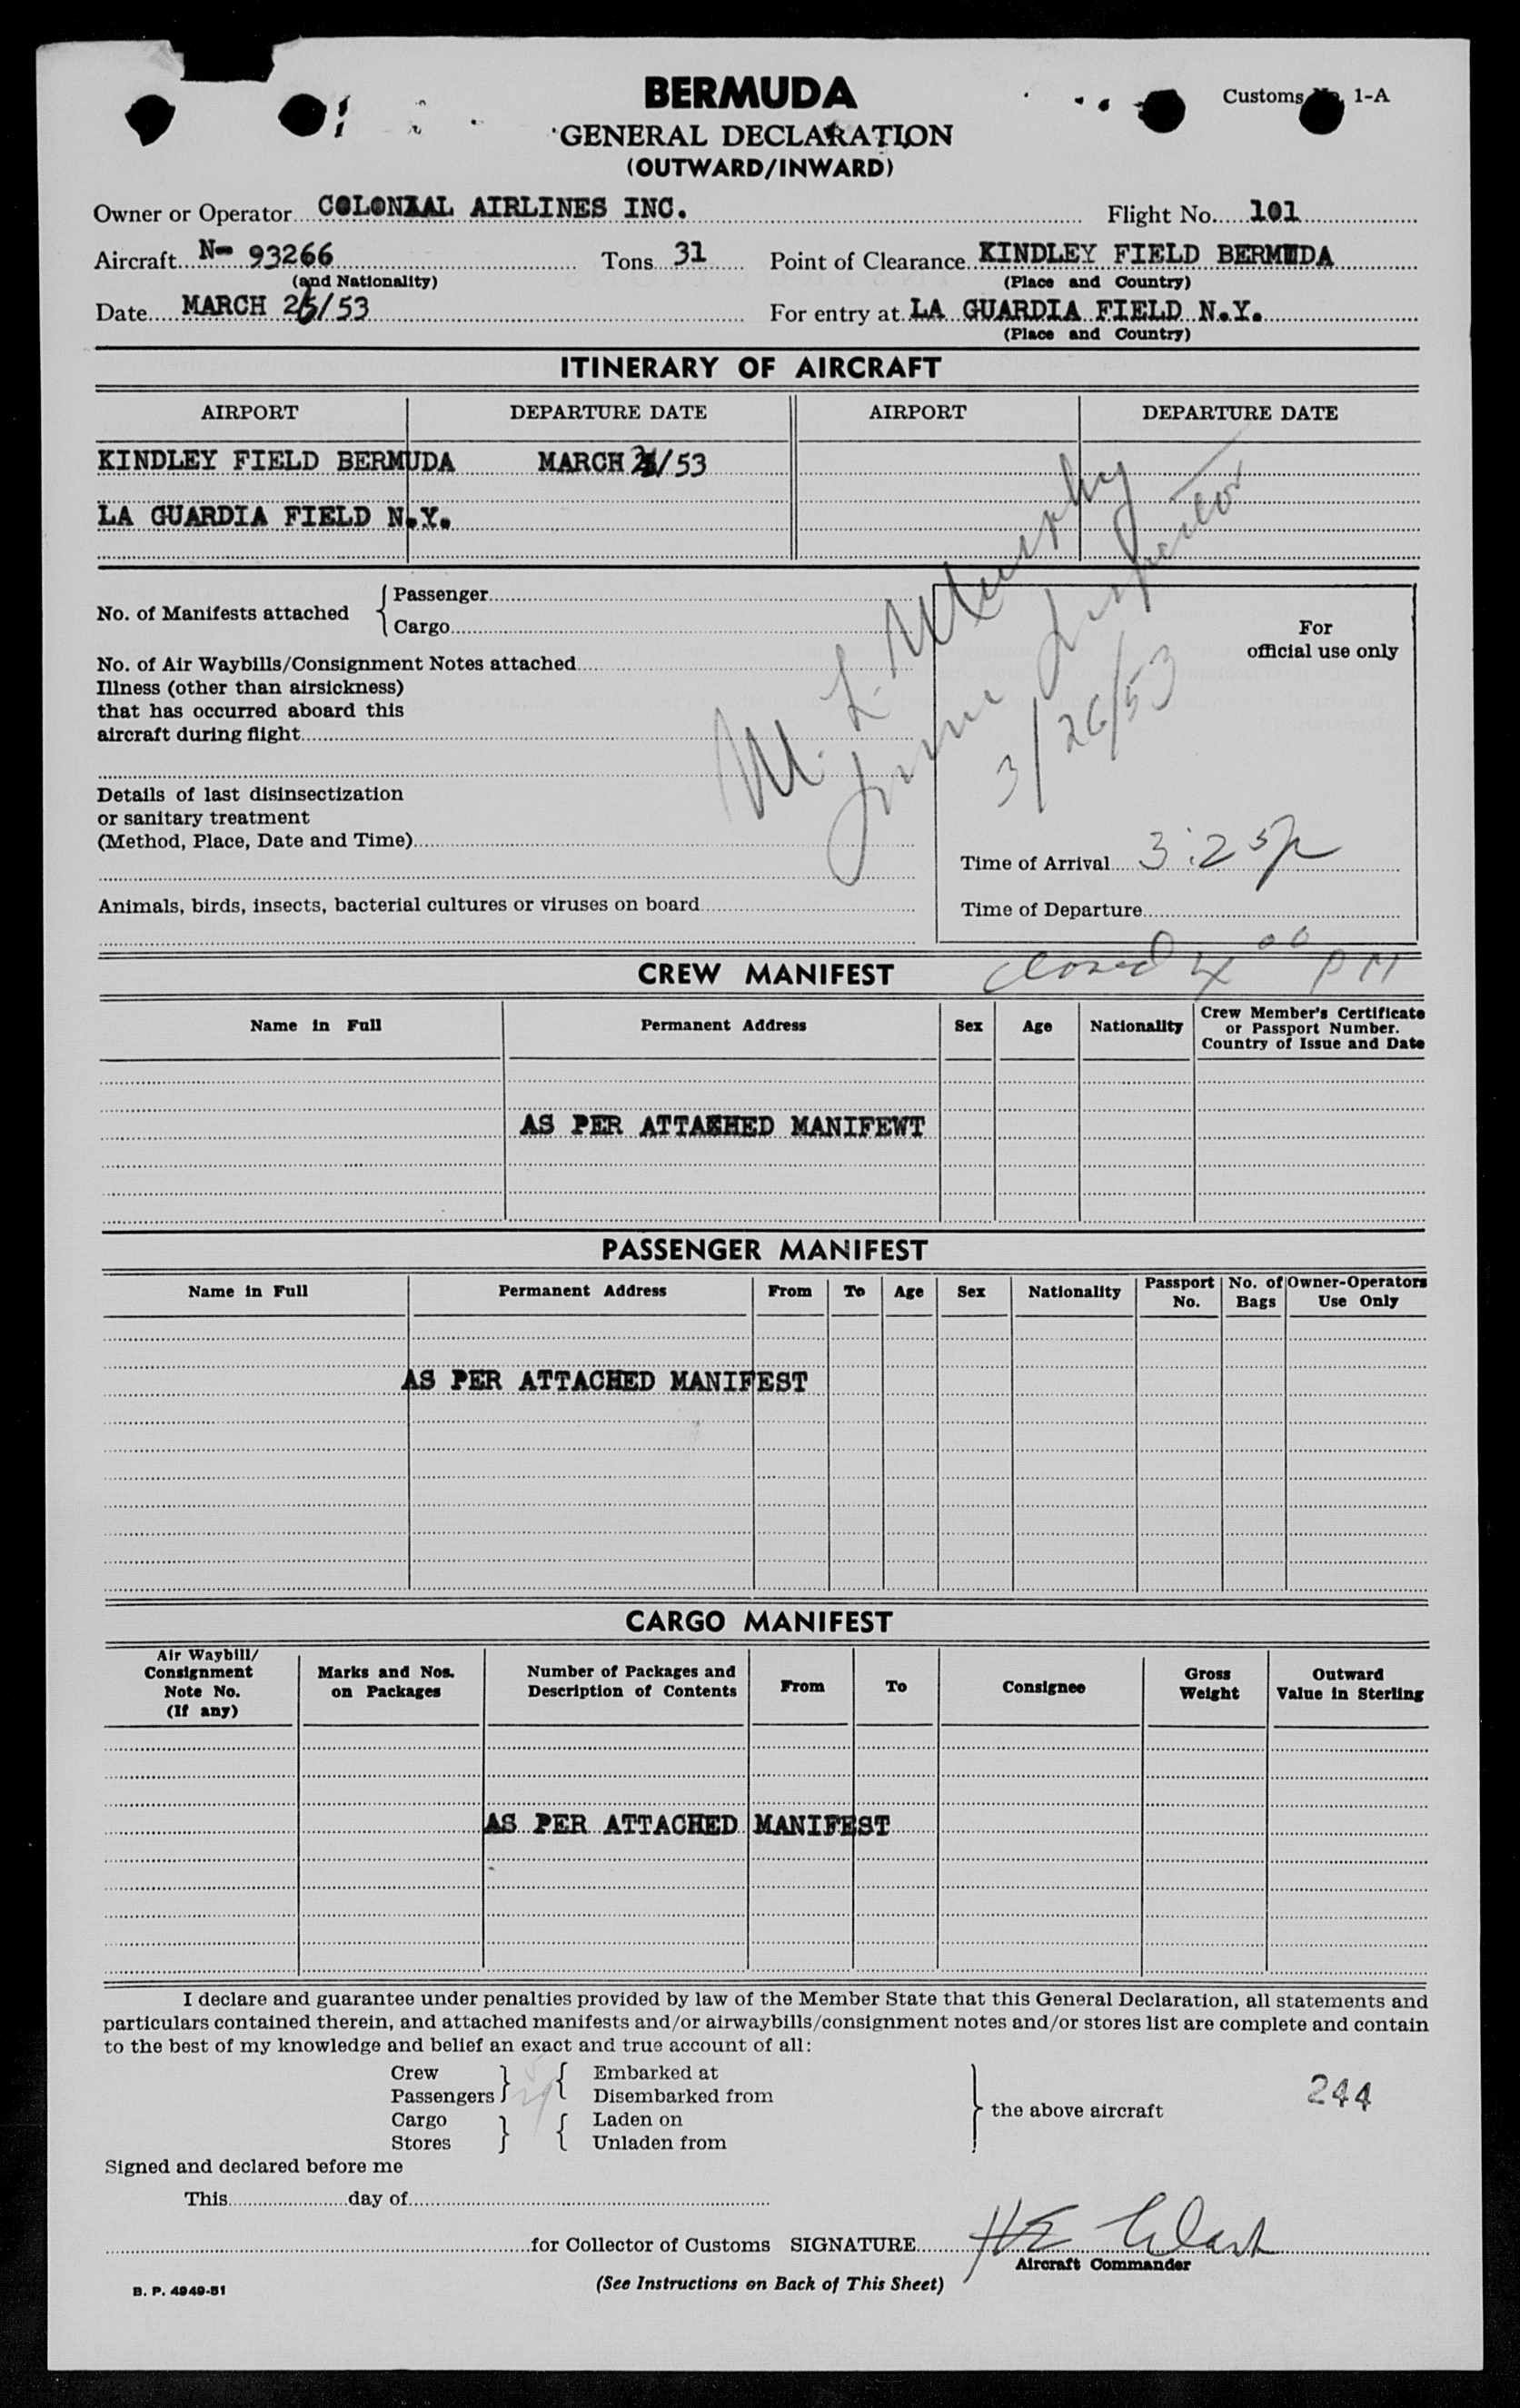 BERMUDA
Customs No. 1-A
GENERAL DECLARATION
(OUTWARD/INWARD)
Owner or Operator COLONIAL AIRLINES INC. Flight No. 101
Aircraft N- 93266 Tons 31 Point of Clearance KINDLEY FIELD BERMUDA
(and Nationality) (Place and Country)
Date MARCH 26/53 For entry at LA GUARDIA FIELD N.Y.
(Place and Country)
ITINERARY OF AIRCRAFT
AIRPORT DEPARTURE DATE AIRPORT DEPARTURE DATE
KINDLEY FIELD BERMUDA MARCH 26/53
LA GUARDIA FIELD N.Y.
No. of Manifests attached { Passenger
Cargo
For
official use only
No. of Air Waybills/Consignment Notes attached
Illness (other than airsickness)
that has occurred aboard this
aircraft during flight
M. L. Murphy
Imm Inspector
3/26/53
Details of last disinsectization
or sanitary treatment
(Method, Place, Date and Time)
Time of Arrival 3:25p
Animals, birds, insects, bacterial cultures or viruses on board
Time of Departure
closed 4 00 PM
CREW MANIFEST
Name in Full Permanent Address Sex Age Nationality Crew Member's Certificate
or Passport Number.
Country of Issue and Date
AS PER ATTACHED MANIFEWT
PASSENGER MANIFEST
Name in Full Permanent Address From To Age Sex Nationality Passport No. No. of Bags Owner-Operators Use Only
AS PER ATTACHED MANIFEST
CARGO MANIFEST
Air Waybill/
Consignment
Note No.
(If any)
Marks and Nos.
on Packages
Number of Packages and
Description of Contents
From To Consignee
Gross
Weight
Outward
Value in Sterling
AS PER ATTACHED MANIFEST
I declare and guarantee under penalties provided by law of the Member State that this General Declaration, all statements and
particulars contained therein, and attached manifests and/or airwaybills/consignment notes and/or stores list are complete and contain
to the best of my knowledge and belief an exact and true account of all:
Crew } { Embarked at
Passengers Disembarked from
Cargo } { Laden on
Stores Unladen from
} the above aircraft
244
Signed and declared before me
This day of
for Collector of Customs SIGNATURE HE
Aircraft Commander
B. P. 4949-51
(See Instructions on Back of This Sheet)